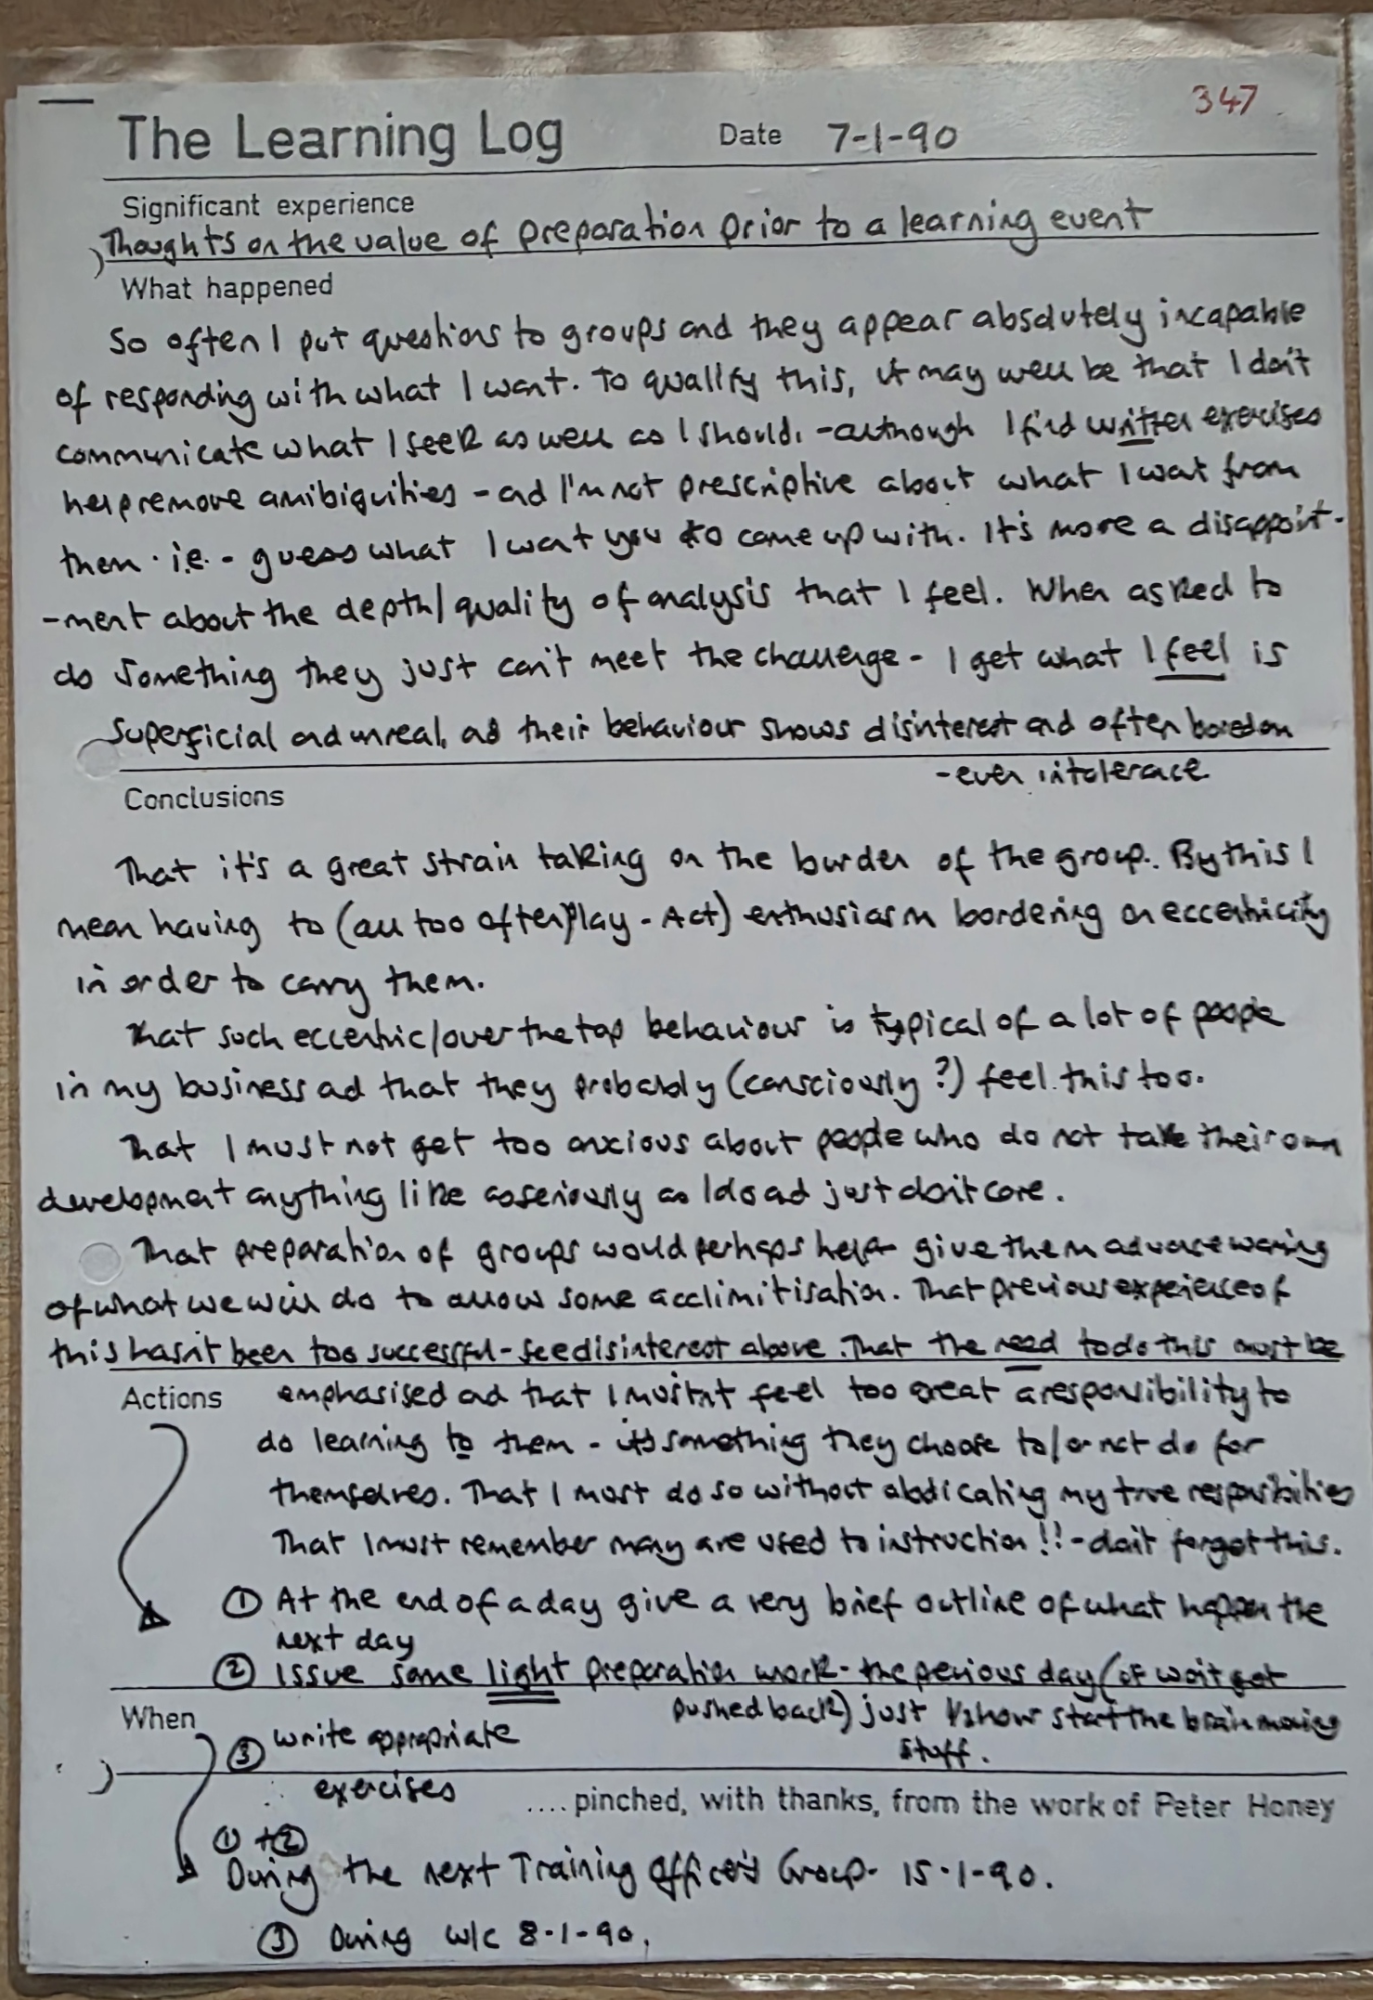 347
The Learning Log Date 7-1-90
Significant experience
Thoughts on the value of preparation prior to a learning event
What happened
So often I put questions to groups and they appear absolutely incapable
of responding with what I want. To qualify this, it may well be that I don't
communicate what I seek as well as I should, - although I find written exercises
help remove amibiquities - and I'm not prescriptive about what I want from
them. i.e. - guess what I want you to come up with. It's more a disappoint-
-ment about the depth/quality of analysis that I feel. When asked to
do something they just can't meet the challenge - I get what I feel is
superficial and unreal, as their behaviour shows disinterest and often boredom
- even intolerance
Conclusions
That it's a great strain taking on the burden of the group. By this I
mean having to (all too often play-Act) enthusiasm bordering on eccentricity
in order to carry them.
That such eccentric/over the top behaviour is typical of a lot of people
in my business and that they probably (consciously?) feel this too.
That I must not get too anxious about people who do not take their own
development anything like as seriously as I do and just don't care.
That preparation of groups would perhaps help give them advance warning
of what we will do to allow some acclimitisation. That previous experience of
this hasn't been too successful - see disinterest above. That the need to do this must be
Actions emphasised and that I mustn't feel too great a responsibility to
do learning to them - it's something they choose to/or not do for
themselves. That I must do so without abdicating my true responsibilities
That I must remember many are used to instruction!! - don't forget this.
① At the end of a day give a very brief outline of what happen the
next day
② Issue some light preparation work - the previous day (of wont get
pushed back) just ½ hour start the brain moving
stuff.
When
③ write appropriate
exercises
.... pinched, with thanks, from the work of Peter Honey
① + ②
During the next Training Officer's Group - 15.1-90.
③ During w/c 8-1-90.